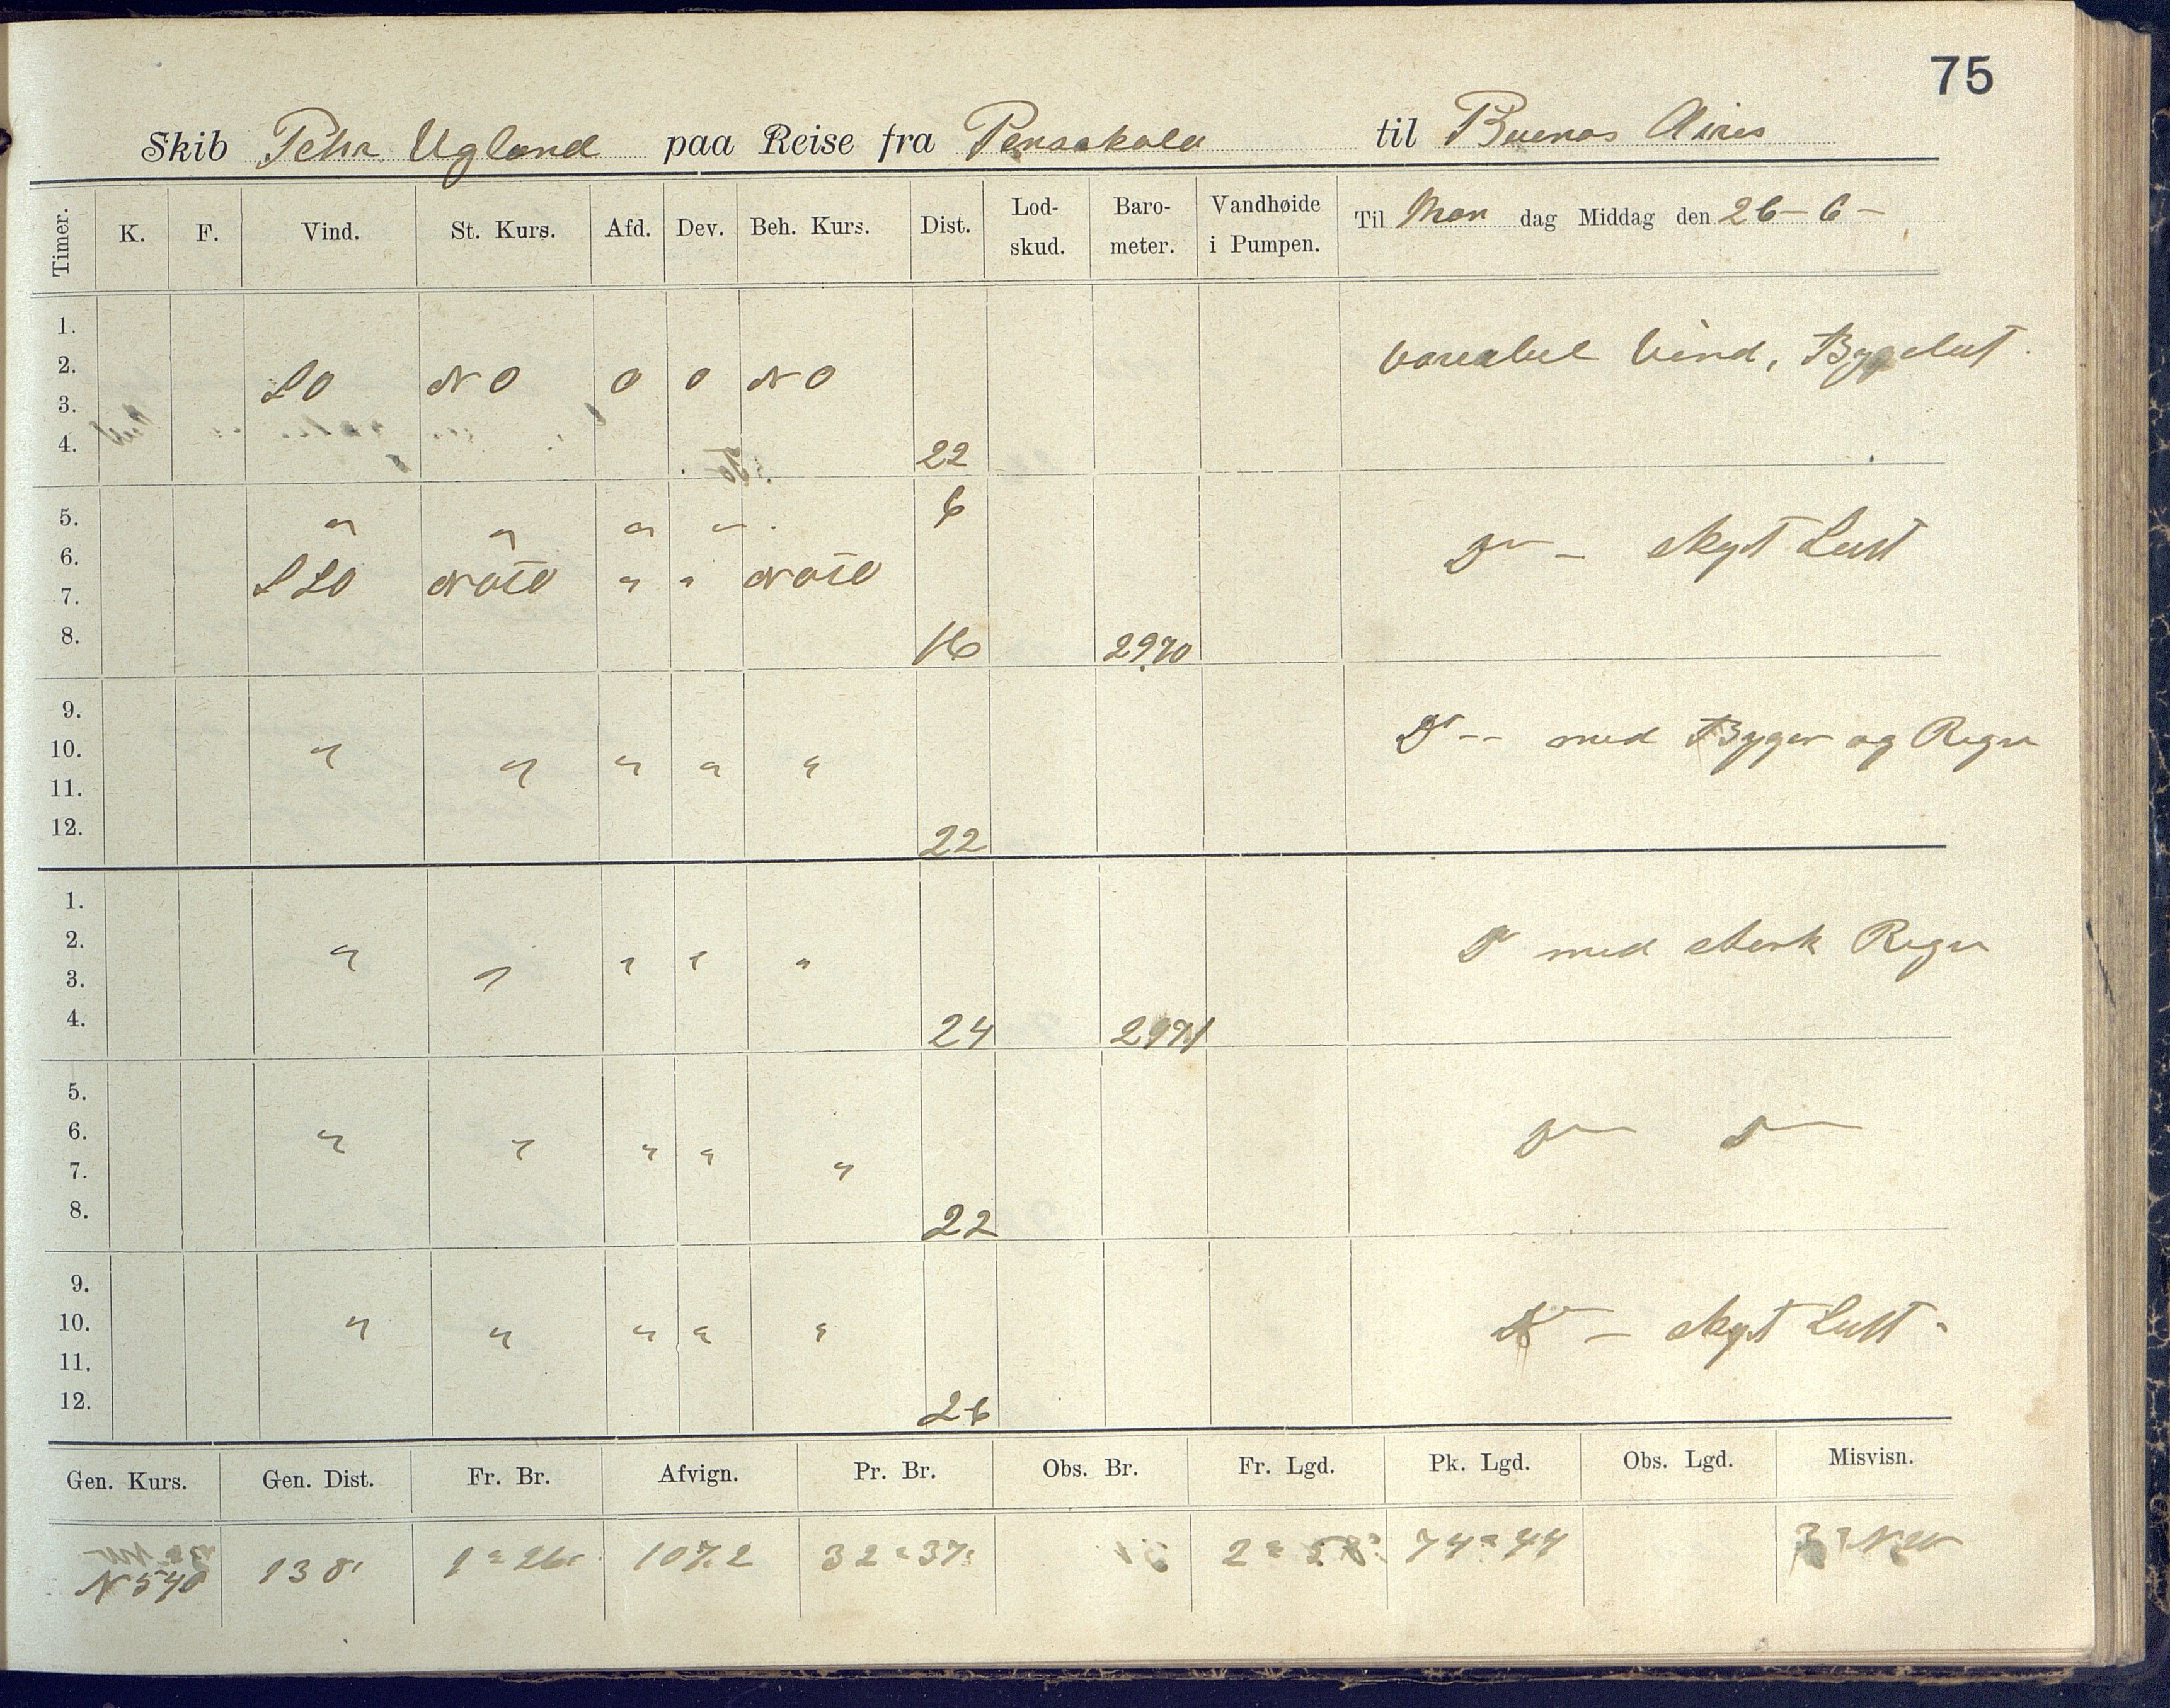 75
Skib Pehr Ugland paa Reise fra Pensakola til Buenos Aires
Timer. K. F. Vind. St. Kurs. Afd. Dev. Beh. Kurs. Dist. Lod-skud. Baro-meter. Vandhøide i Pumpen. Til Man dag Middag den 26-6-
1.
2. SO NO 0 0 NO Variabel Vind, Bygeluft.
3.
4. 22
5. " " " " 6
6. SSO NOtO " " NOtO Do - skyet Luft
7.
8. 16 29.70
9.
10. " " " " " Do -- med Byger og Regn
11.
12. 22
1.
2. " " " " " Do med sterk Regn
3.
4. 24 29.71
5.
6. " " " " " Do Do
7.
8. 22
9.
10. " " " " " Do - skyet Luft -
11.
12. 26
Gen. Kurs. Gen. Dist. Fr. Br. Afvign. Pr. Br. Obs. Br. Fr. Lgd. Pk. Lgd. Obs. Lgd. Misvisn.
N 54 O 138' 1° 26' 107.2 32° 37' 2° 58' 74° 44